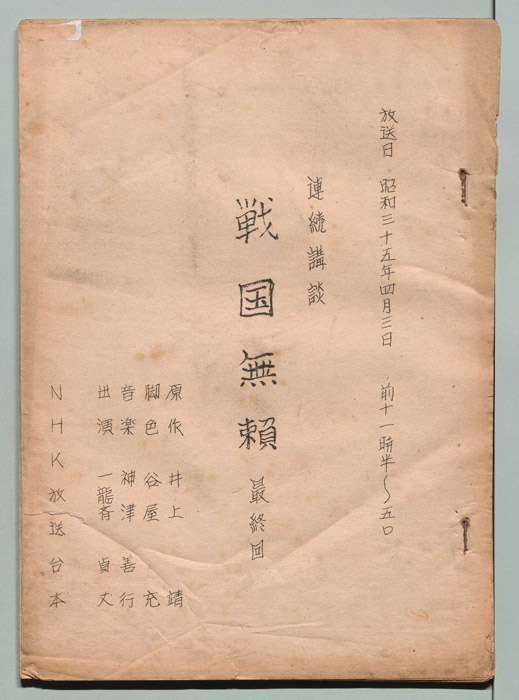 放送日 昭和三十五年四月三日 前十一時半〜五〇
連続講談
戦国無頼 最終回
原作 井上 靖
脚色 谷屋 充
音楽 神津善行
出演 一龍斉貞丈
NHK放送台本